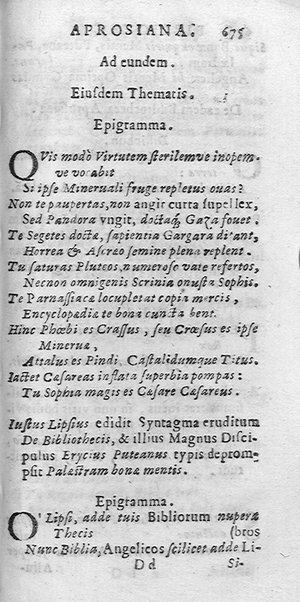 APROSIANA. 675
Ad eundem.
Eiusdem Thematis.
Epigramma.
QVis modò Virtutem sterilemve inopem-
ve vocabit
Si ipse Mineruali fruge repletus ouas?
Non te paupertas, non angit curta supellex,
Sed Pandora vngit, doctaq; Gaza fouet.
Te Segetes doctæ, sapientia Gargara ditant,
Horrea & Ascræo semine plena replent.
Tu saturas Pluteos, numeroso vate refertos,
Necnon omnigenis Scrinia onusta Sophis.
Te Parnassiaca locupletat copia mercis,
Encyclopædia te bona cuncta beant.
Hinc Phœbi es Crassus, seu Crœsus es ipse
Mineruæ,
Attalus es Pindi, Castalidumque Titus.
Iactet Cæsareas inflata superbia pompas:
Tu Sophia magis es Cæsare Cæsareus.
Iustus Lipsius edidit Syntagma eruditum
De Bibliothecis, & illius Magnus Disci-
pulus Erycius Puteanus typis deprom-
psit Palæstram bonæ mentis.
Epigramma.
O' Lipsi, adde tuis Bibliorum nuperæ
Thecis (bros
Nunc Biblia, Angelicos scilicet adde Li-
D d Si-